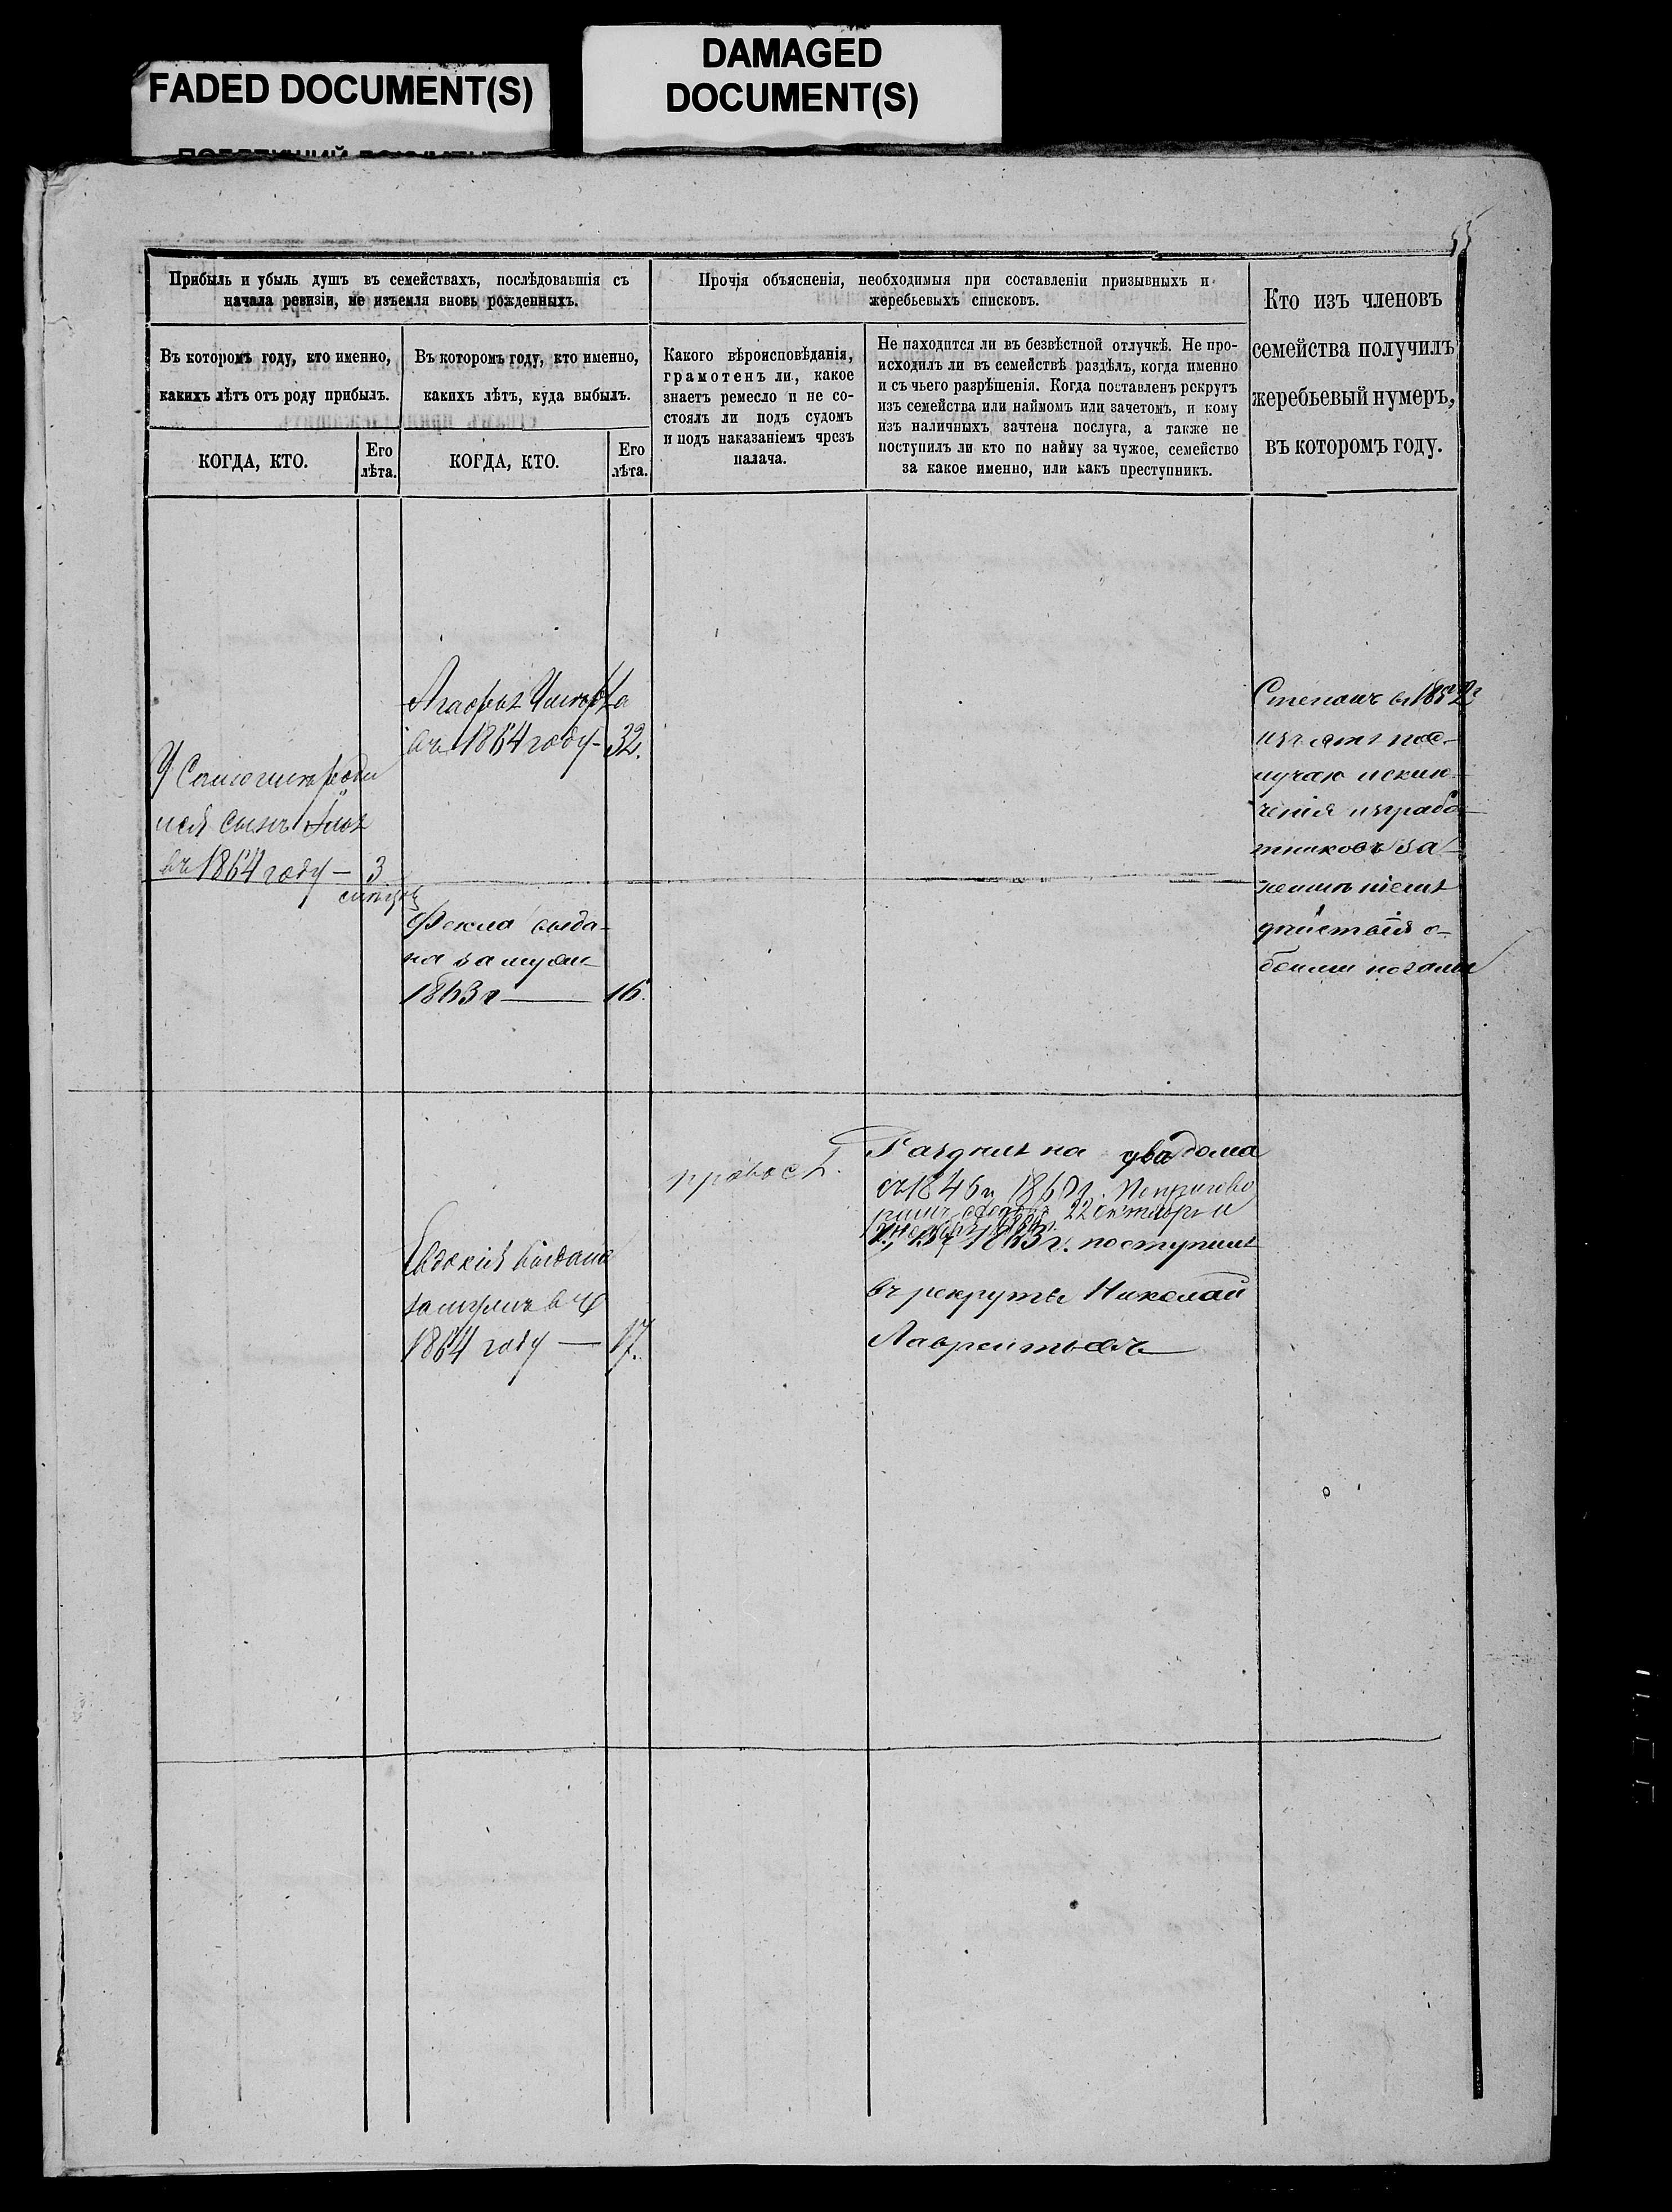 FADED DOCUMENT(S)
DAMAGED
DOCUMENT(S)
55
Прибыль и убыль душъ въ семействахъ, послѣдовавшія съ
начала ревизіи, не изъемля вновь рожденныхъ.
Въ которомъ году, кто именно,
какихъ лѣтъ отъ роду прибылъ.
КОГДА, КТО.
Его
лѣта.
Въ которомъ году, кто именно,
какихъ лѣтъ, куда выбылъ.
КОГДА, КТО.
Его
лѣта.
Прочія объясненія, необходимыя при составленіи призывныхъ и
жеребьевыхъ списковъ.
Какого вѣроисповѣданія,
грамотенъ ли, какое
знаетъ ремесло и не со-
стоялъ ли подъ судомъ
и подъ наказаніемъ чрезъ
палача.
Не находится ли въ безвѣстной отлучкѣ. Не про-
исходилъ ли въ семействѣ раздѣлъ, когда именно
и съ чьего разрѣшенія. Когда поставленъ рекрутъ
изъ семейства или наймомъ или зачетомъ, и кому
изъ наличныхъ зачтена послуга, а также не
поступилъ ли кто по найму за чужое, семейство
за какое именно, или какъ преступникъ.
Кто изъ членовъ
семейства получилъ
жеребьевый нумеръ,
въ которомъ году.
въ 1864 году - 32.
У роди
лся сынъ
въ 1864 году — 3
Фекла выда-
на замужъ
1863 г — 16.
Степанъ въ 1852 г
чаю исклю-
ченія изъ рабо-
тниковъ за
дѣйствія о-
беими ногами
правос.
Раздѣлъ на два дома
съ 1846 и 186 г. По пригово
22 октября
1863 г. поступилъ
въ рекруты Николай
Лаврентьевъ
Евдокія выдана
замужъ въ
1864 году — 17.